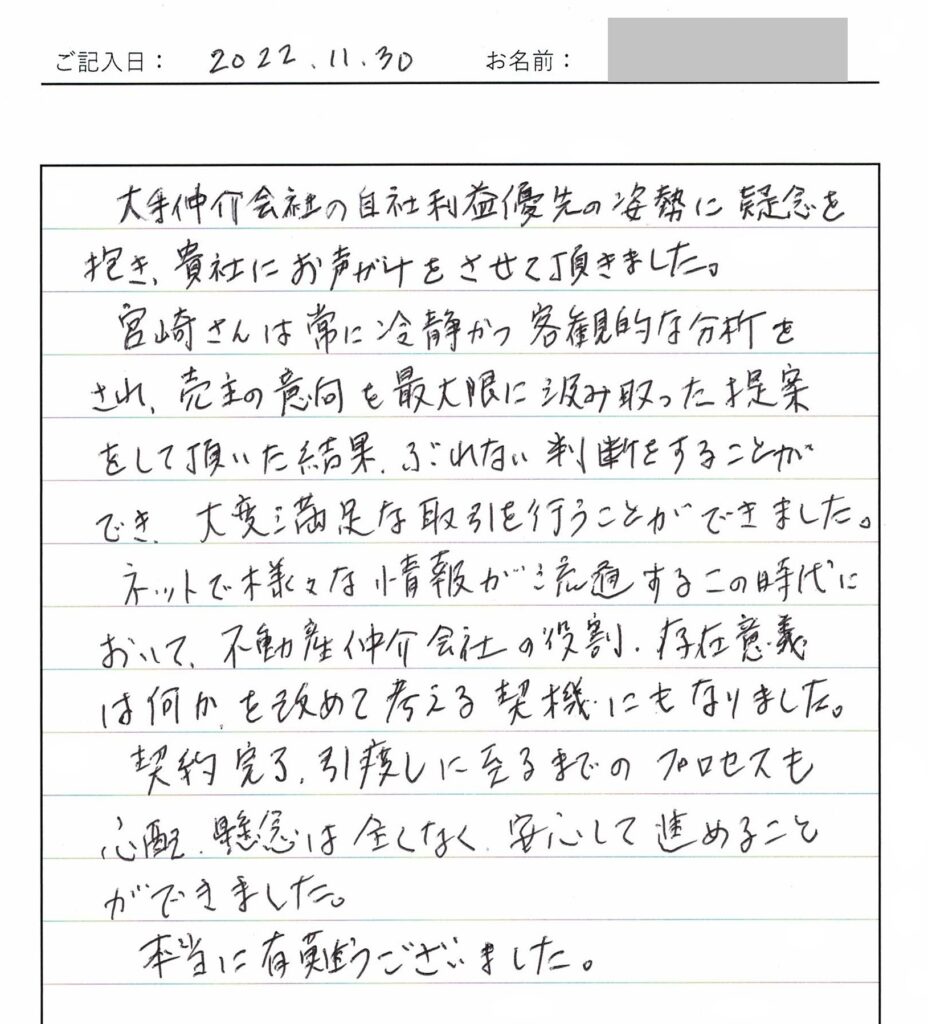 ご記入日： 2022.11.30 お名前：
大手仲介会社の自社利益優先の姿勢に疑念を
抱き、貴社にお声がけをさせて頂きました。
宮崎さんは常に冷静かつ客観的な分析を
され、売主の意向を最大限に汲み取った提案
をして頂いた結果、ぶれない判断をすることが
でき、大変満足な取引を行うことができました。
ネットで様々な情報が流通するこの時代に
おいて、不動産仲介会社の役割、存在意義
は何か、を改めて考える契機にもなりました。
契約完了、引渡しに至るまでのプロセスも
心配、懸念は全くなく、安心して進めること
ができました。
本当に有難うございました。